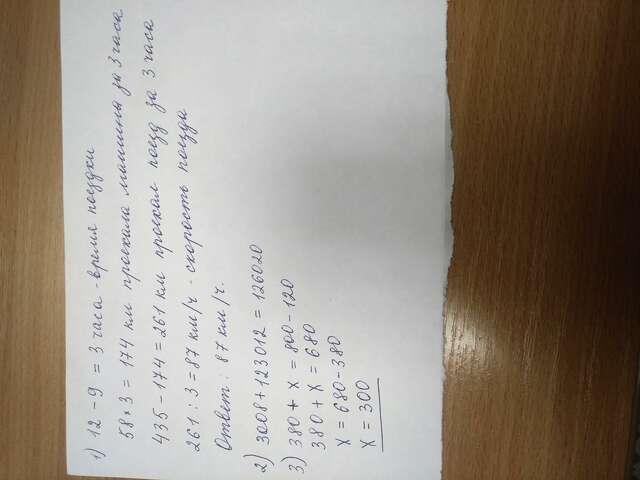 1) 12 - 9 = 3 часа - время поездки
58 × 3 = 174 км проехала машина за 3 часа
435 - 174 = 261 км проехал поезд за 3 часа
261 : 3 = 87 км/ч - скорость поезда
Ответ: 87 км/ч.
2) 3008 + 123012 = 126020
3) 380 + x = 800 - 120
380 + x = 680
x = 680 - 380
x = 300